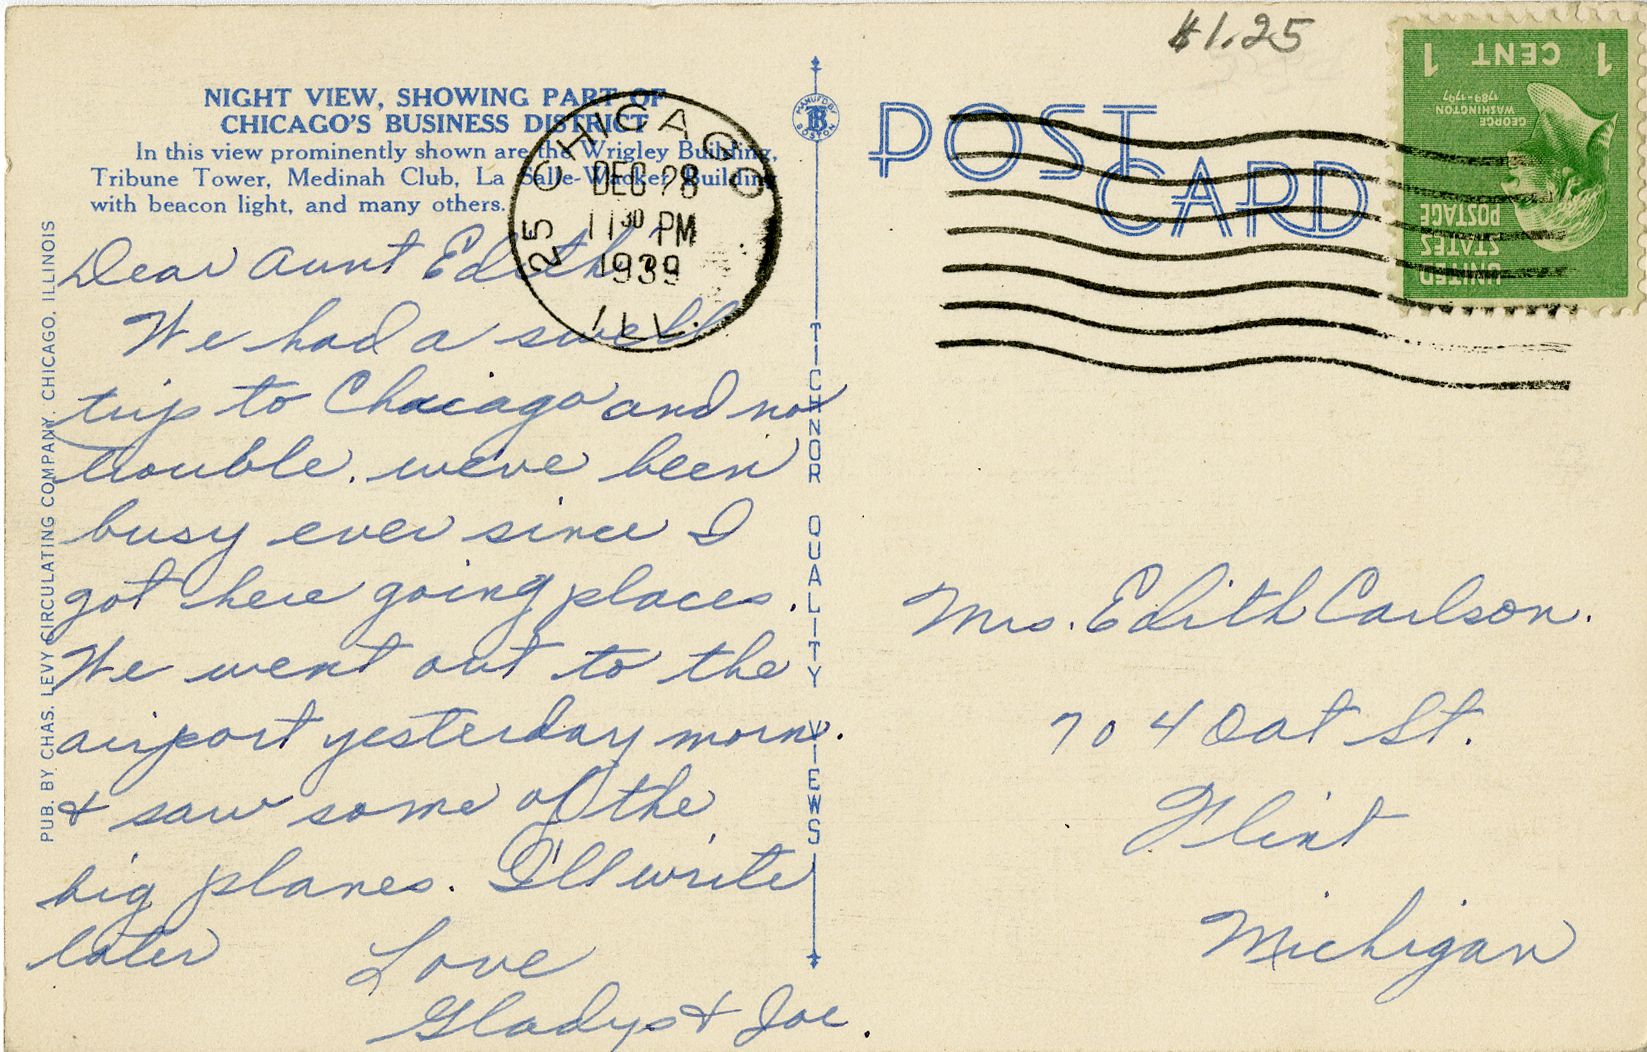 $1.25
NIGHT VIEW, SHOWING PART OF
CHICAGO'S BUSINESS DISTRICT
In this view prominently shown are the Wrigley Building,
Tribune Tower, Medinah Club, La Salle-Wacker Building
with beacon light, and many others.
CHICAGO
25
DEC 28
11 30 PM
1939
ILL.
MANUF'D BY
BOSTON
POST
CARD
1 CENT 1
GEORGE
WASHINGTON
1789-1797
UNITED
STATES
POSTAGE
Dear Aunt Edith,
We had a swell
trip to Chicago and no
trouble. weve been
busy ever since I
got here going places.
We went out to the
airport yesterday morn.
& saw some of the
big planes. I'll write
later
Love
Gladys & Joe.
PUB. BY CHAS. LEVY CIRCULATING COMPANY, CHICAGO, ILLINOIS
TICHNOR QUALITY VIEWS
Mrs. Edith Carlson.
704 Oat St.
Flint
Michigan